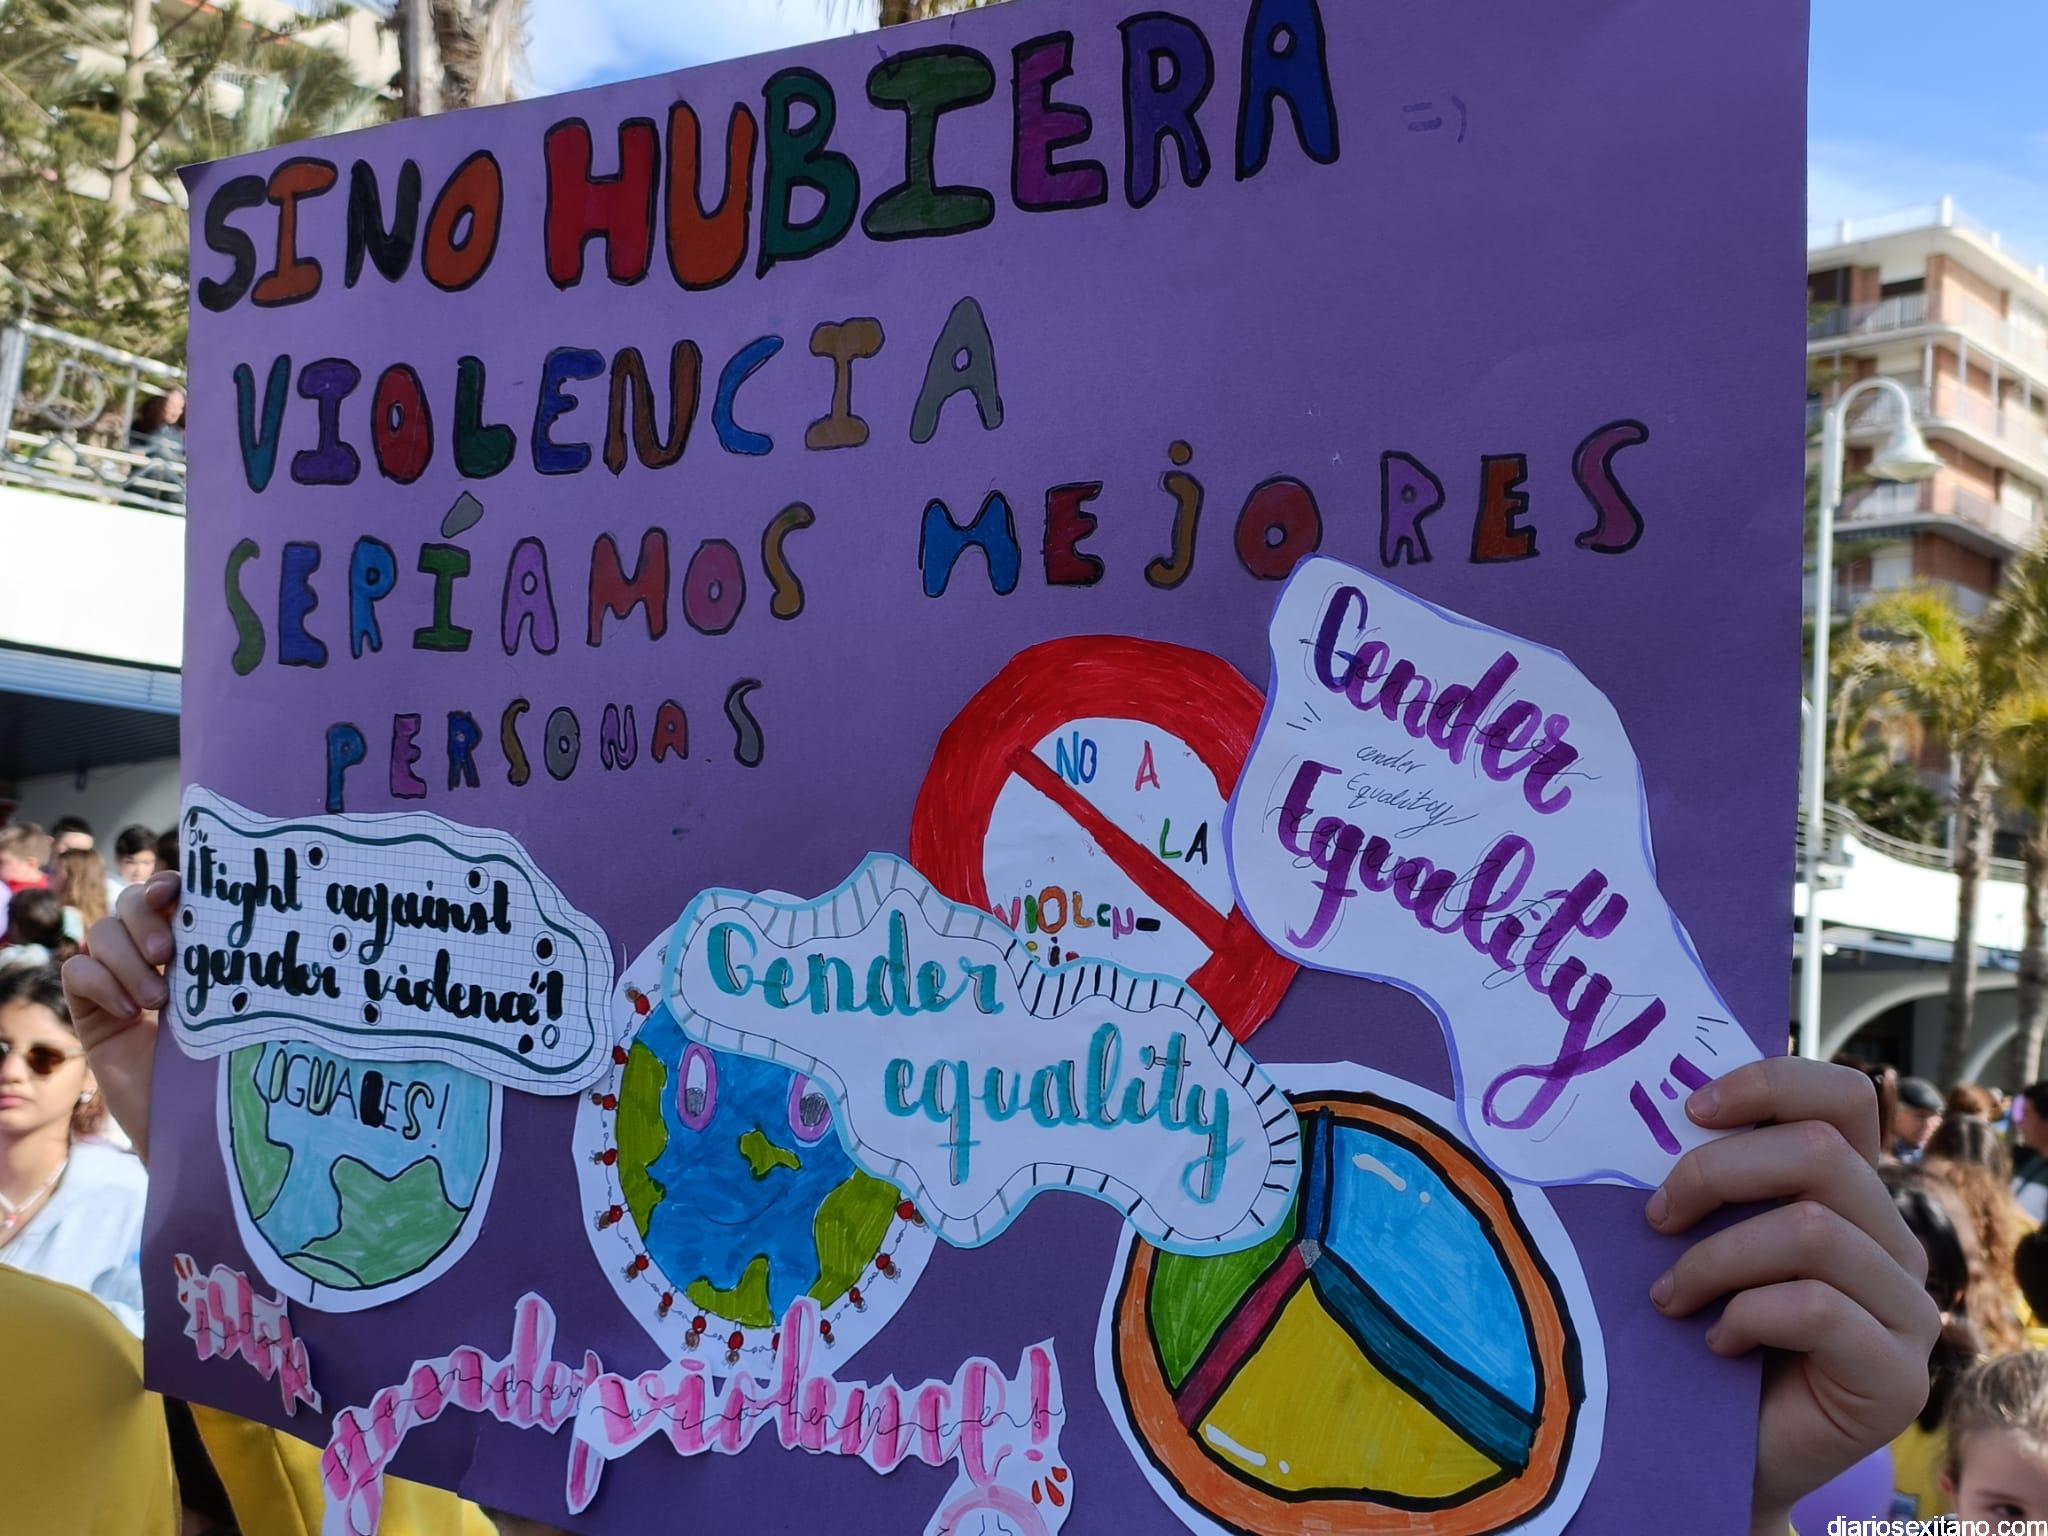 SINO HUBIERA =)
VIOLENCIA
SERÍAMOS MEJORES
PERSONAS
NO A
LA
VIOLEN-
Gender
Gender
Equality
Equality
¡"Fight against
gender violence"!
IGUALES!
Gender
equality
¡stop
gender violence!
diariosexitano.com